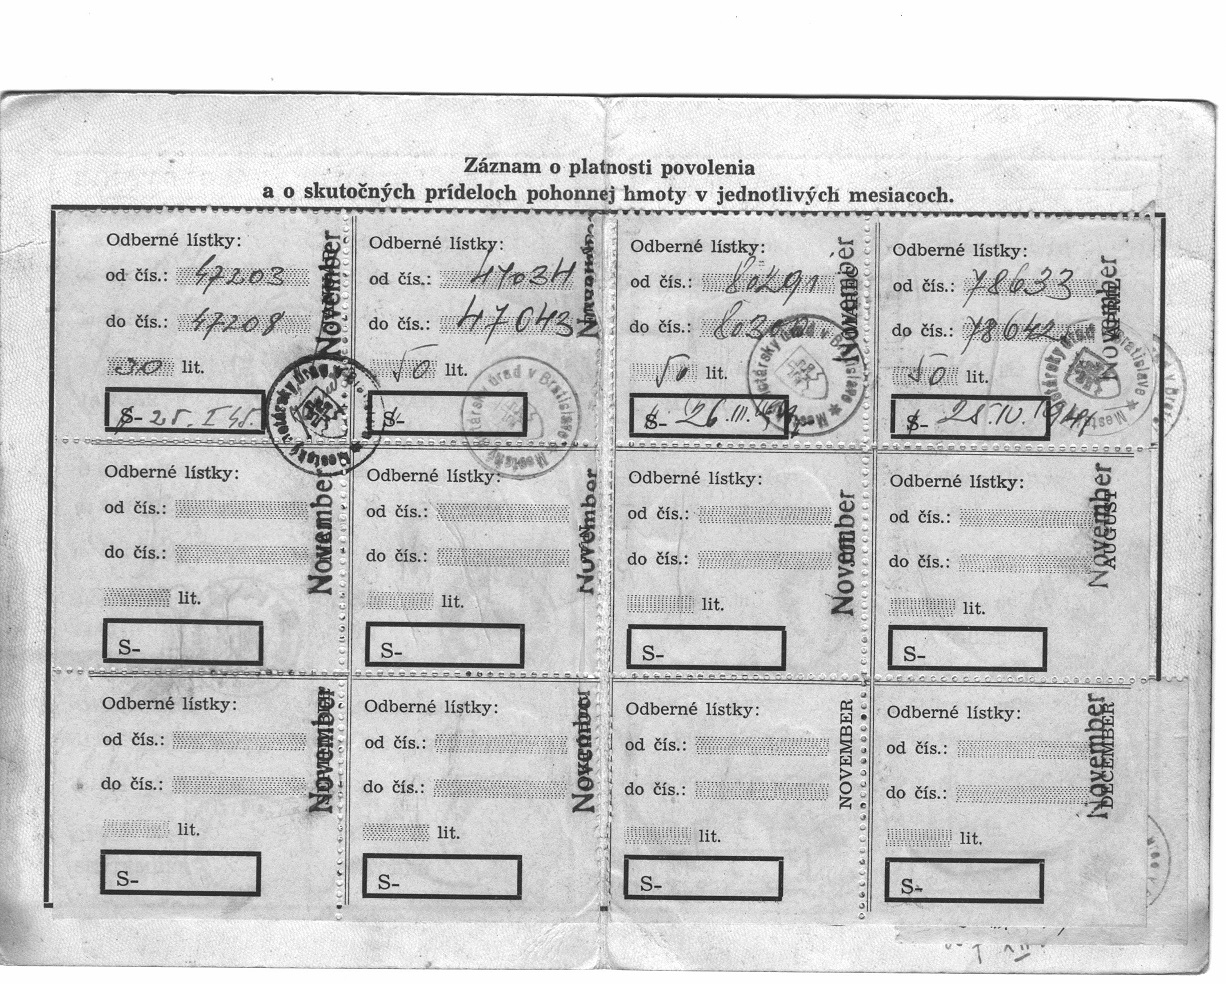 Záznam o platnosti povolenia
a o skutočných prídeloch pohonnej hmoty v jednotlivých mesiacoch.
Odberné lístky:
od čís.: 47203
do čís.: 47208
30 lit.
S- 25. I. 45.
November
Odberné lístky:
od čís.: 47034
do čís.: 47043
50 lit.
S-
November
Odberné lístky:
od čís.: 80291
do čís.:
50 lit.
S- 26. III.
November
Odberné lístky:
od čís.: 78633
do čís.: 78642
50 lit.
S- 28. IV.
November
APRÍL
Odberné lístky:
od čís.:
do čís.:
lit.
S-
November
Odberné lístky:
od čís.:
do čís.:
lit.
S-
November
Odberné lístky:
od čís.:
do čís.:
lit.
S-
November
Odberné lístky:
od čís.:
do čís.:
lit.
S-
November
AUGUST
Odberné lístky:
od čís.:
do čís.:
lit.
S-
November
Odberné lístky:
od čís.:
do čís.:
lit.
S-
November
Odberné lístky:
od čís.:
do čís.:
lit.
S-
NOVEMBER
Odberné lístky:
od čís.:
do čís.:
lit.
S-
November
DECEMBER
Mestský notársky úrad v Bratislave